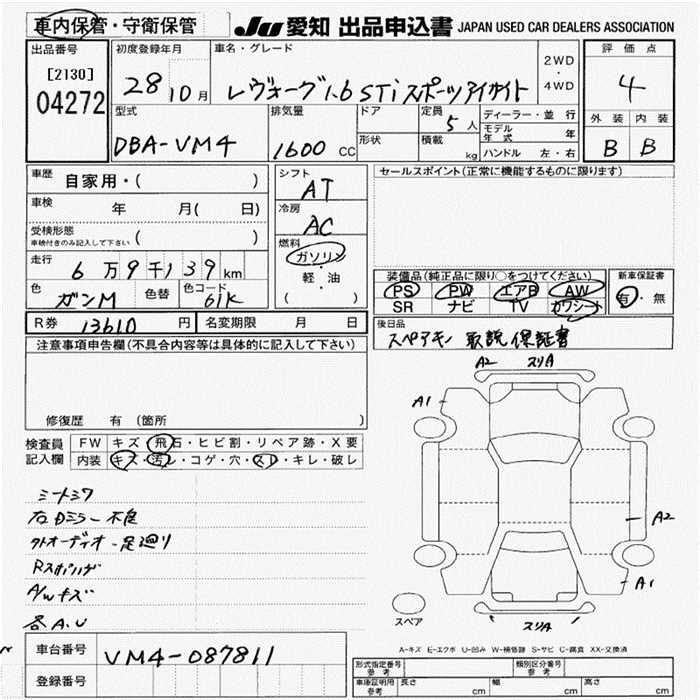 車内保管・守衛保管
JU 愛知 出品申込書 JAPAN USED CAR DEALERS ASSOCIATION
出品番号 初度登録年月 車名・グレード 評価点
[2130] 28 10月 レヴォーグ1.6 STi スポーツアイサイト 2WD・4WD 4
04272
型式 排気量 ドア 定員 5人 ディーラー・並行 外装 内装
DBA-VM4 1600 CC 形状 積載 kg モデル年式 年 B B
ハンドル 左・右
車歴 自家用・( ) シフト AT セールスポイント(正常に機能するものに限ります)
車検 年 月( 日) 冷房 AC
受検形態 車検付きのみ記入して下さい ( ) 燃料 ガソリン
走行 6万9千139km 軽・油
色 ガンM 色替 色コード 61K ( )
装備品(純正品に限り○をつけてください) 新車保証書
PS PW エアB AW 有・無
SR ナビ TV カワシート
R券 13610 円 名変期限 月 日 後日品
スペアキー 取説 保証書
注意事項申告欄(不具合内容等は具体的に記入して下さい)
A2 スリA
A1
修復歴 有 (箇所 )
検査員 記入欄 FW キズ・飛石・ヒビ割・リペア跡・X要
内装 キズ・汚レ・コゲ・穴・スレ・キレ・破レ
シートシワ
右Dミラー不良
外オーディオ・足廻り
A2
Rスポイラー
A/Wキズ
A1
各A.U
スペア スリA
車台番号 VM4-087811
A-キズ E-エクボ U-凹み W-補修跡 S-サビ C-腐食 XX-交換済
登録番号
形式指定番号 参考 類別区分番号 参考
車庫証明用 参考 長さ cm 幅 cm 高さ cm